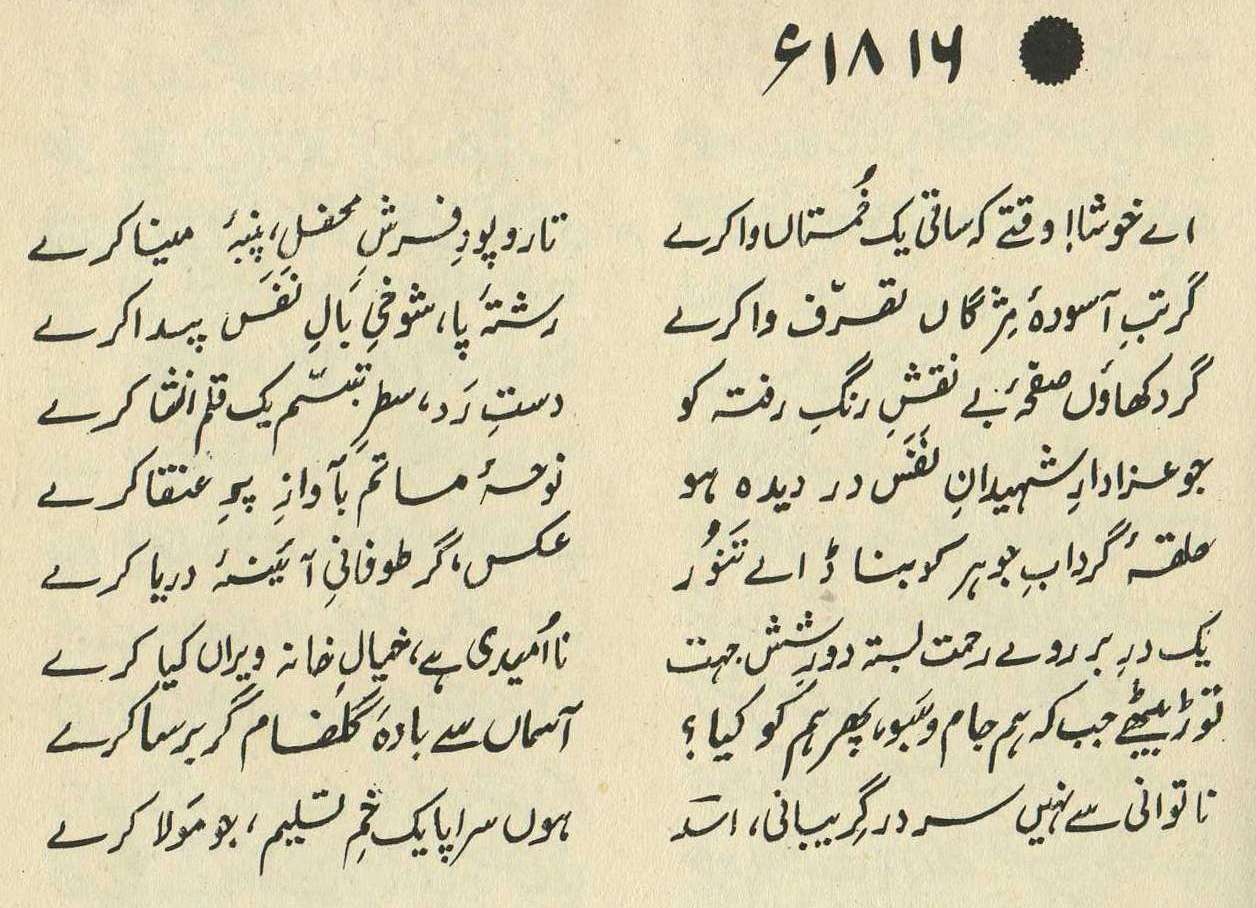 ۱۸۱۶ء
اے خوشا! وقتے کہ ساقی یک خُمستاں وا کرے
تار و پودِ فرشِ محفل، پنبۂ مینا کرے
گر تبِ آسودۂ مژگاں تصرّف وا کرے
رشتۂ پا، شوخیِ بالِ نَفَس پیدا کرے
گر دکھاؤں صفحۂ بے نقشِ رنگِ رفتہ کو
دستِ رَد، سطرِ تبسّم یک قلم انشا کرے
جو عزادارِ شہیدانِ نَفَس در دیدہ ہو
نوحۂ ماتم بآوازِ پرِ عنقا کرے
حلقۂ گردابِ جوہر کو بنا ڈالے تَنُور
عکس، گر طوفانیِ آئینۂ دریا کرے
یک درِ بر روے رحمت بستہ دورِ شش جہت
نا اُمیدی ہے، خیالِ خانہ ویراں کیا کرے
توڑ بیٹھے جب کہ ہم جام و سبو، پھر ہم کو کیا؟
آسماں سے بادۂ گلفام گر برسا کرے
ناتوانی سے نہیں سر در گریبانی، اسدؔ
ہوں سراپا یک خَمِ تسلیم، جو مَولا کرے